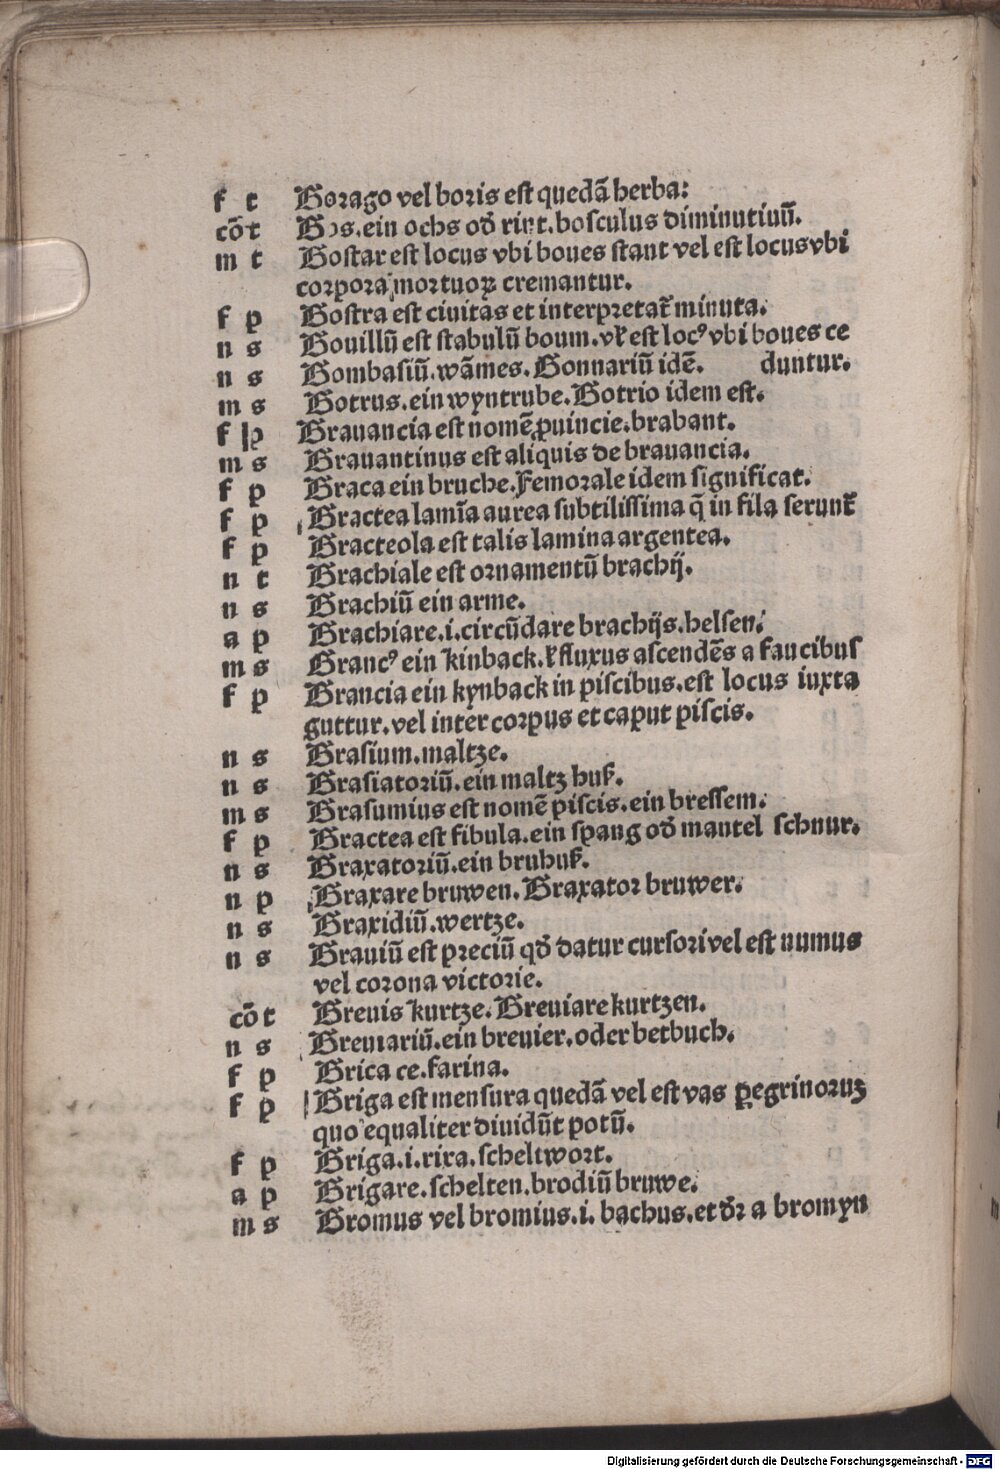 f t Borago vel boris est quedā herba:
cōt Bos. ein ochs od̕ rint. bosculus diminutiuū.
m t Bostar est locus vbi boues stant vel est locus vbi
corpora mortuoꝝ cremantur.
f p Bostra est ciuitas et interpretat᷑ minuta.
n s Bouillū est stabulū boum. vł est locꝰ vbi boues ce
n s Bombasiū. wāmes. Bonnariū idē. duntur.
m s Botrus. ein wyntrube. Botrio idem est.
f p Brauancia est nomē ꝓuincie. brabant.
m s Brauantinus est aliquis de brauancia.
f p Braca ein bruche. Femorale idem significat.
f p Bractea lamīa aurea subtilissima q̄ in fila serunt᷑
f p Bracteola est talis lamina argentea.
n t Brachiale est ornamentū brachij.
n s Brachiū ein arme.
a p Brachiare. i. circūdare brachijs. helsen.
m s Brancꝰ ein kinback. ł fluxus ascendēs a faucibus
f p Brancia ein kynback in piscibus. est locus iuxta
guttur. vel inter corpus et caput piscis.
n s Brasium. maltze.
n s Brasiatoriū. ein maltz huß.
m s Brasumius est nomē piscis. ein bressem.
f p Bractea est fibula. ein spang od̕ mantel schnur.
n s Braxatoriū. ein bruhuß.
n p Braxare bruwen. Braxator bruwer.
n s Braxidiū. wertze.
n s Brauiū est preciū qd̕ datur cursori vel est numus
vel corona victorie.
cōt Breuis kurtze. Breuiare kurtzen.
n s Breuiariū. ein breuier. oder betbuch.
f p Brica ce. farina.
f p Briga est mensura quedā vel est vas ꝑegrinoruꝫ
quo equaliter diuidūt potū.
f p Briga. i. rixa. scheltwort.
a p Brigare. schelten. brodiū bruwe.
m s Bromus vel bromius. i. bachus. et dr̄ a bromyn
Digitalisierung gefördert durch die Deutsche Forschungsgemeinschaft - DFG